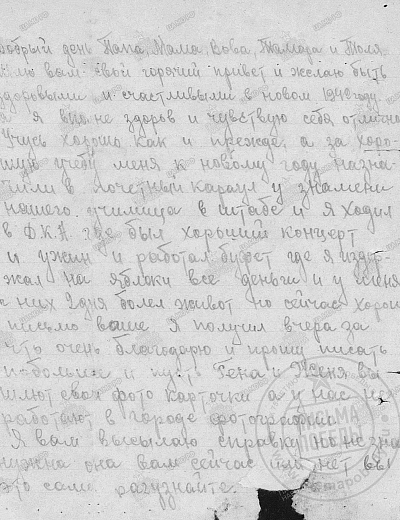 Добрый день Папа, Мама, Вова, Тамара и Толя
шлю вам свой горячий привет и желаю быть
здоровыми и счастливыми в новом 1940 году
я вполне здоров и чувствую себя отлично
Учусь хорошо как и прежде, а за хоро-
шую учебу меня к новому году назна-
чили в почетный караул у знамени
нашего училища в штабе и я ходил
в Д.К.А. где был хороший концерт
и ужин и работал буфет где я издер-
жал на яблоки все деньги и у меня
с них 2 дня болел живот но сейчас хорошо
письмо ваше я получил вчера за
что очень благодарю и прошу писать
побольше и пусть Гена и Женя вы
шлют свои фото карточки а у нас не
работают в городе фотографии
Я вам высылаю справку но не знаю
нужна она вам сейчас или нет вы
это сами разузнайте.
ПИСЬМА